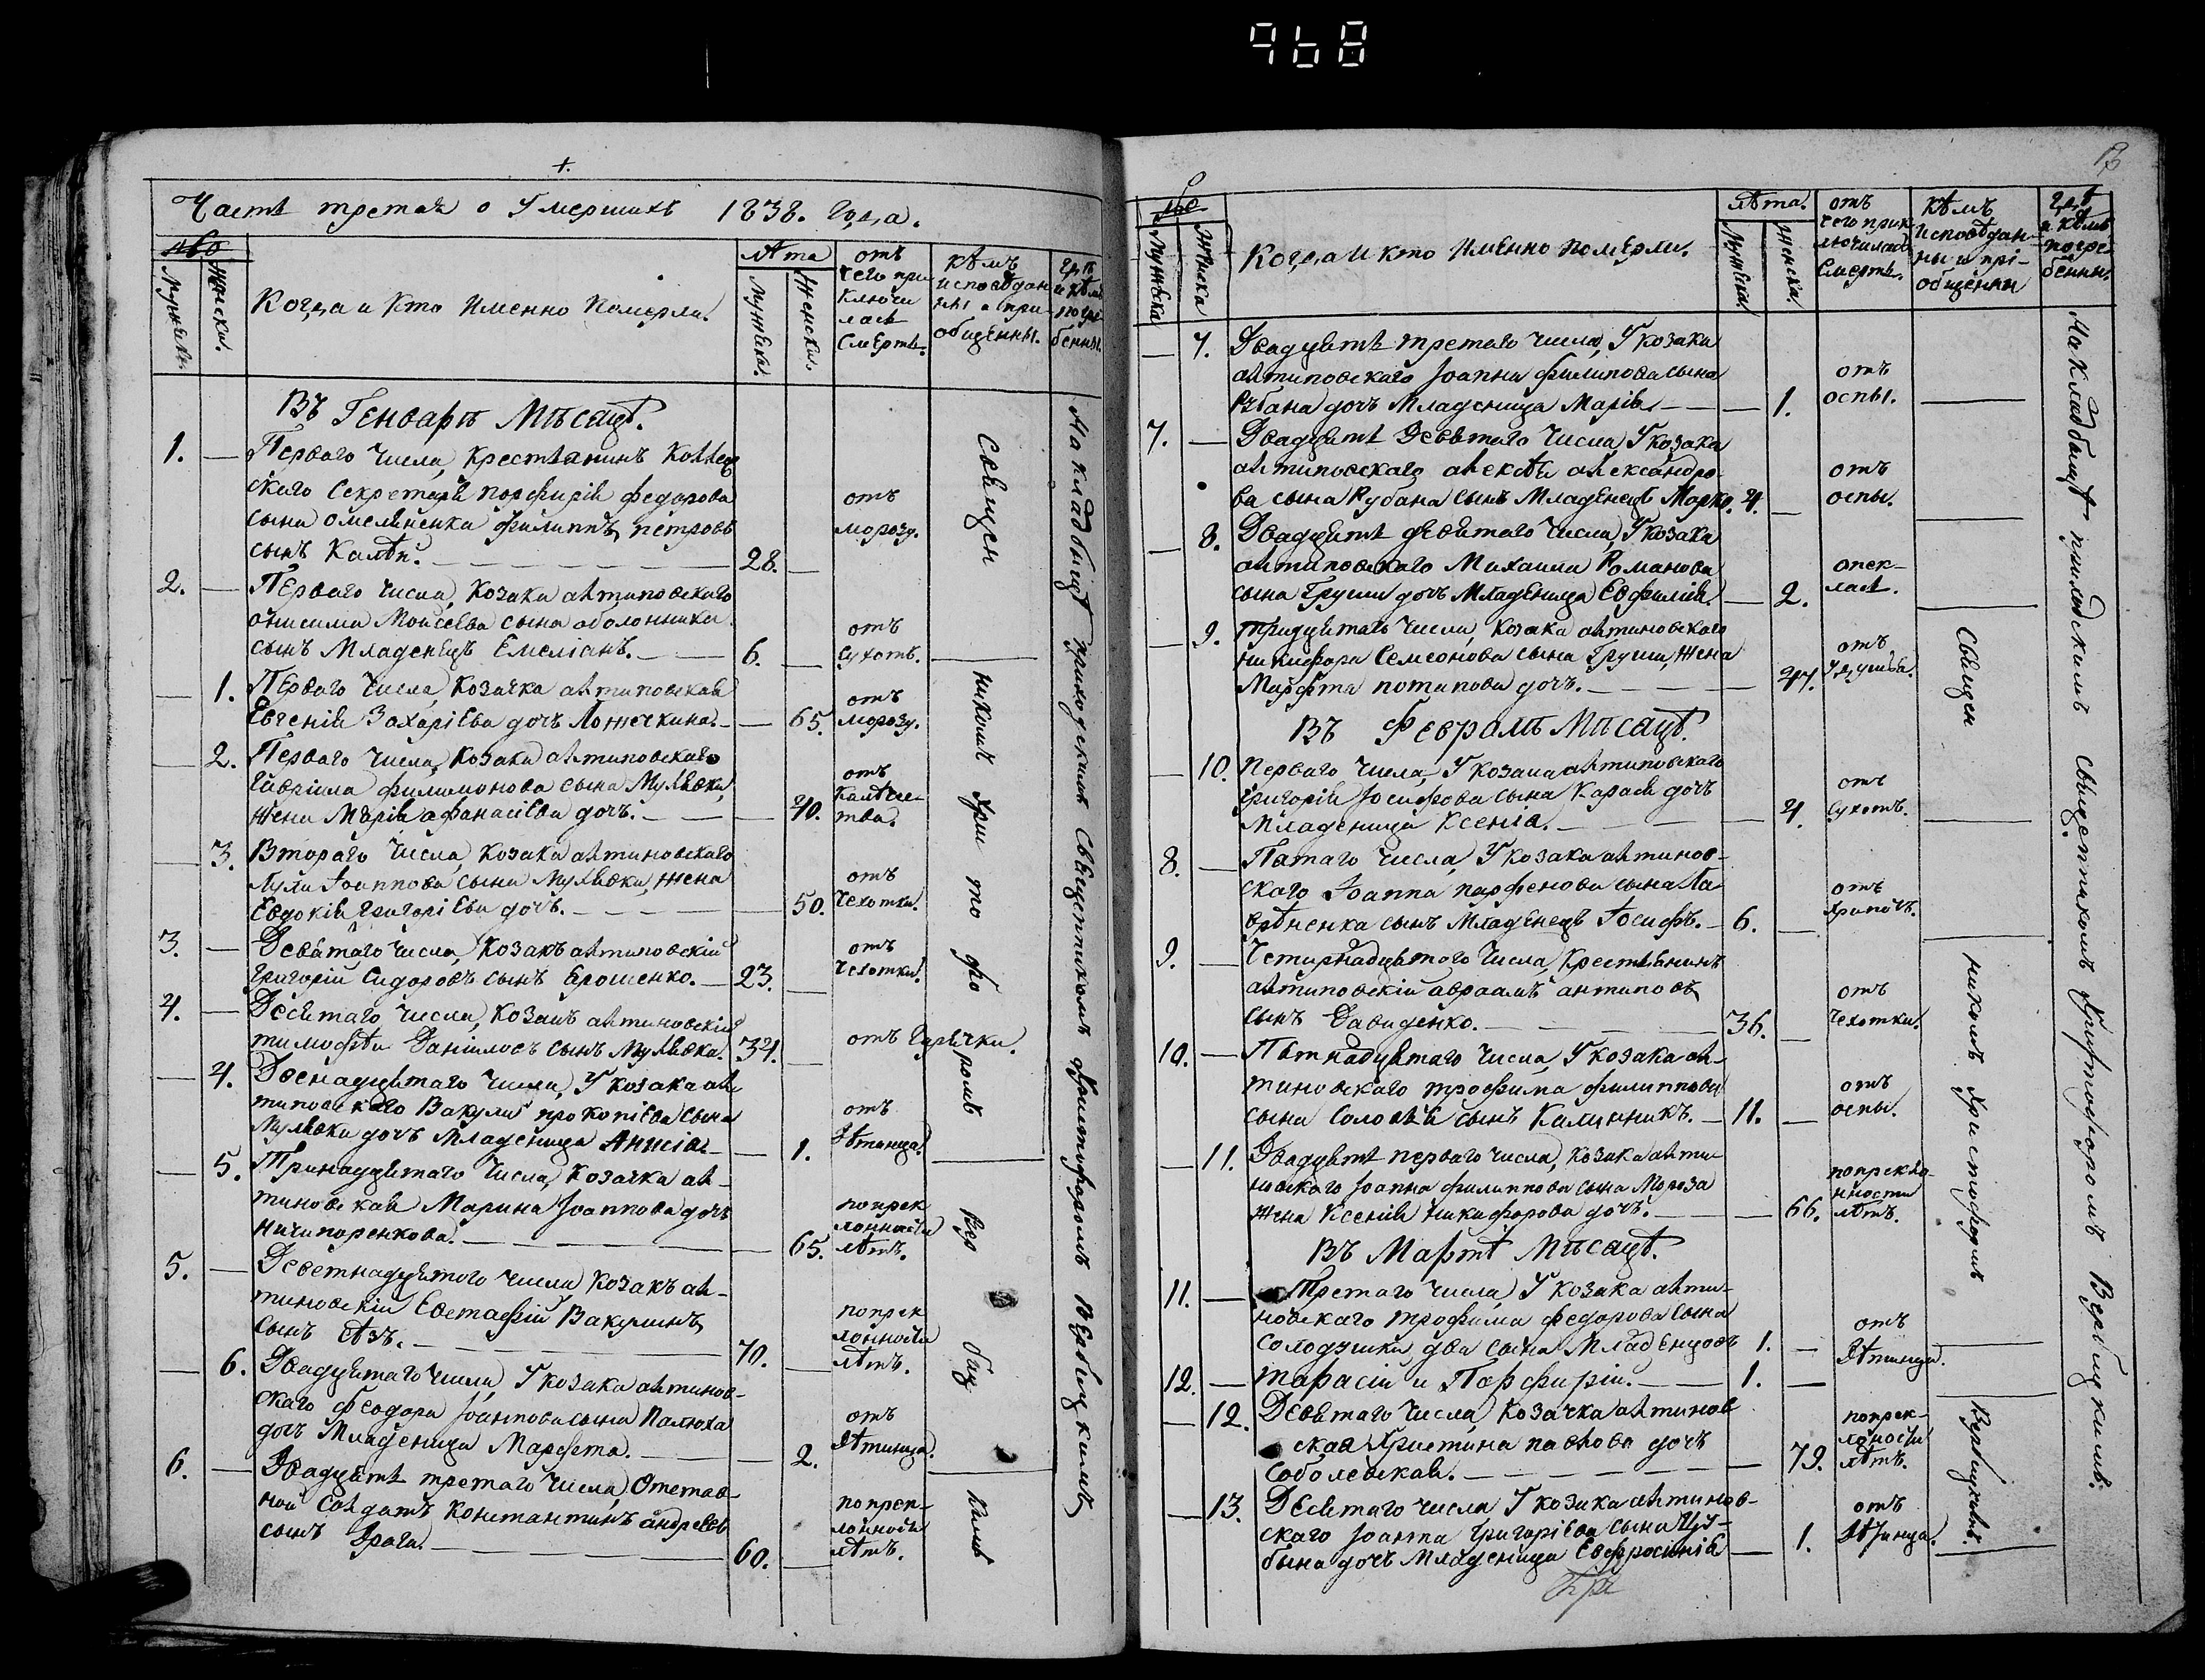 968
Часть третая о Умершихъ 1838. Года.
Мужеска. Женска. Когда и Кто Именно Померли.
Лѣта Мужеска. Женска.
отъ чего приключилась Смерть.
кѣмъ исповѣданны и приобщенны.
Гдѣ и кѣмъ погребенны.
Въ Генварѣ Мѣсацѣ.
1. — Перваго Числа, Крестьанинъ Коллеж
ского Секретаря Порфирія Федорова
сына Омелѣненка Филиппъ, Петровъ
сынъ Калѣн. — 28. — отъ морозу.
2. — Перваго Числа, Козака антиповского
Онисима Моисѣева сына Оболонника
сынъ Младенецъ Емеліанъ. — 6. — отъ Сухотъ.
— 1. Перваго Числа, Козачка антиповская
Евгенія Захаріева дочъ Ложечкина. — 65. отъ морозу.
— 2. Перваго Числа, Козака антиповского
Гавріила Филимонова сына Мулявки,
жена Марія Афанасіева дочъ. — 40. отъ Калѣчества.
— 3. Втораго Числа, Козака антиповского
Луки Іоаннова сына Мулявки, жена
Евдокія Григоріева дочъ. — 50. отъ Чехотки.
3. — Девятаго Числа, Козакъ антиповскій
Григорій Сидоровъ сынъ Ярошенко. — 23. — отъ Чехотки.
4. — Десятаго Числа, Козакъ антиповскій
Тимофѣй Даніиловъ сынъ Мулявка. 34. — отъ Гарячки.
— 4. Двенадцятаго Числа, У козака ан
типовского Вакулы Прокопіева сына
Мулявки дочъ Младеница Анисіа. — 1. отъ Дѣтинца.
— 5. Тринадцятаго Числа, Козачка ан-
типовская Марина Іоаннова дочъ
Ничипоренкова. — 65. попреклонности лѣтъ.
5. — Деветнадцятого Числа, Козакъ ан-
типовскій Евстафій Вакулинъ,
сынъ Язъ. — 70. — попреклонности лѣтъ.
— 6. Двадцятаго Числа, У козака антипов-
ского Феодора Іоаннова сына Палюха
дочъ Младеница Марфета. — 2. отъ Дѣтинца.
6. — Двадцять третаго Числа, Отстав-
ной Солдатъ Константинъ Андреевъ
сынъ Драги. — 60. — попреклонности лѣтъ.
Священ никомъ Хри то фо ромъ Вер биц кимъ
На кладбищѣ приходскимъ Священникомъ Христофоромъ Вербицкимъ
Мужеска Женска Когда и кто Именно померли.
Лѣта. Мужеска. Женска.
отъ чего приключилась Смерть.
кѣмъ Исповѣданны и пріобщенны
Гдѣ и кѣмъ погребенны.
— 7. Двадцять третаго Числа, У козака
антиповского Іоанна Филипова сына
Рубана дочъ Младеница Марія. — 1. отъ оспы.
7. — Двадцять Девятаго Числа, У козака
антиповского Алексѣя Александро-
ва сына Рубана сынъ Младенецъ Марко. 4. — отъ оспы.
— 8. Двадцять девятаго Числа, У козака
антиповского Михаила Романова
сына Груши дочъ Младеница Евфимія. — 2. опеклась.
— 9. Тридцятаго Числа, Козака антиповского
Никифора Семеонова сына Груши, жена
Марфта Потапова дочъ. — 47. отъ Удушья.
Въ Февралѣ Мѣсацѣ.
— 10. Перваго Числа, У козака антиповского
Григорія Іосифова сына Карася дочъ
Младеница Ксеніа. — 4. отъ Сухотъ.
8. — Пятаго Числа, У козака антипов-
ского Іоанна Парфенова сына Га-
врѣненка сынъ Младенецъ Іосифъ. — 6. — отъ Хрипотъ.
9. — Четирнадцятого Числа, Крестьянинъ
антиповскій Авраамъ Антиповъ,
сынъ Давиденко. — 36. — отъ Чехотки.
10. — Пятнадцятаго Числа, У козака ан-
типовского Трофима Филиппова
сына Соловѣя сынъ Калинникъ. — 11. — отъ оспы.
— 11. Двадцять перваго Числа, Козака анти-
повского Іоанна Филиппова сына Мороза
жена Ксенія Никифорова дочъ. — 66. попреклонности лѣтъ.
Въ Мартѣ Мѣсацѣ.
11. — Третаго Числа, У козака анти-
повского Трофима Федорова сына
Солодушки, два сына Младенцовъ 1. — отъ Дѣтинца.
12. — Тарасій и Порфирій. — 1. —
— 12. Девятаго Числа, Козачка антипов
ская Христина Павлова дочъ
Соболевская. — 79. попреклоности лѣтъ.
— 13. Десятаго Числа, У козака антипов-
ского Іоанна Григоріева сына Цу-
бына дочъ Младеница Евфросинія — 1. отъ Дѣтинца.
Священ никомъ Христофоромъ Вербицкимъ.
На кладбищѣ приходскимъ священникомъ Христофоромъ Вербицкимъ.